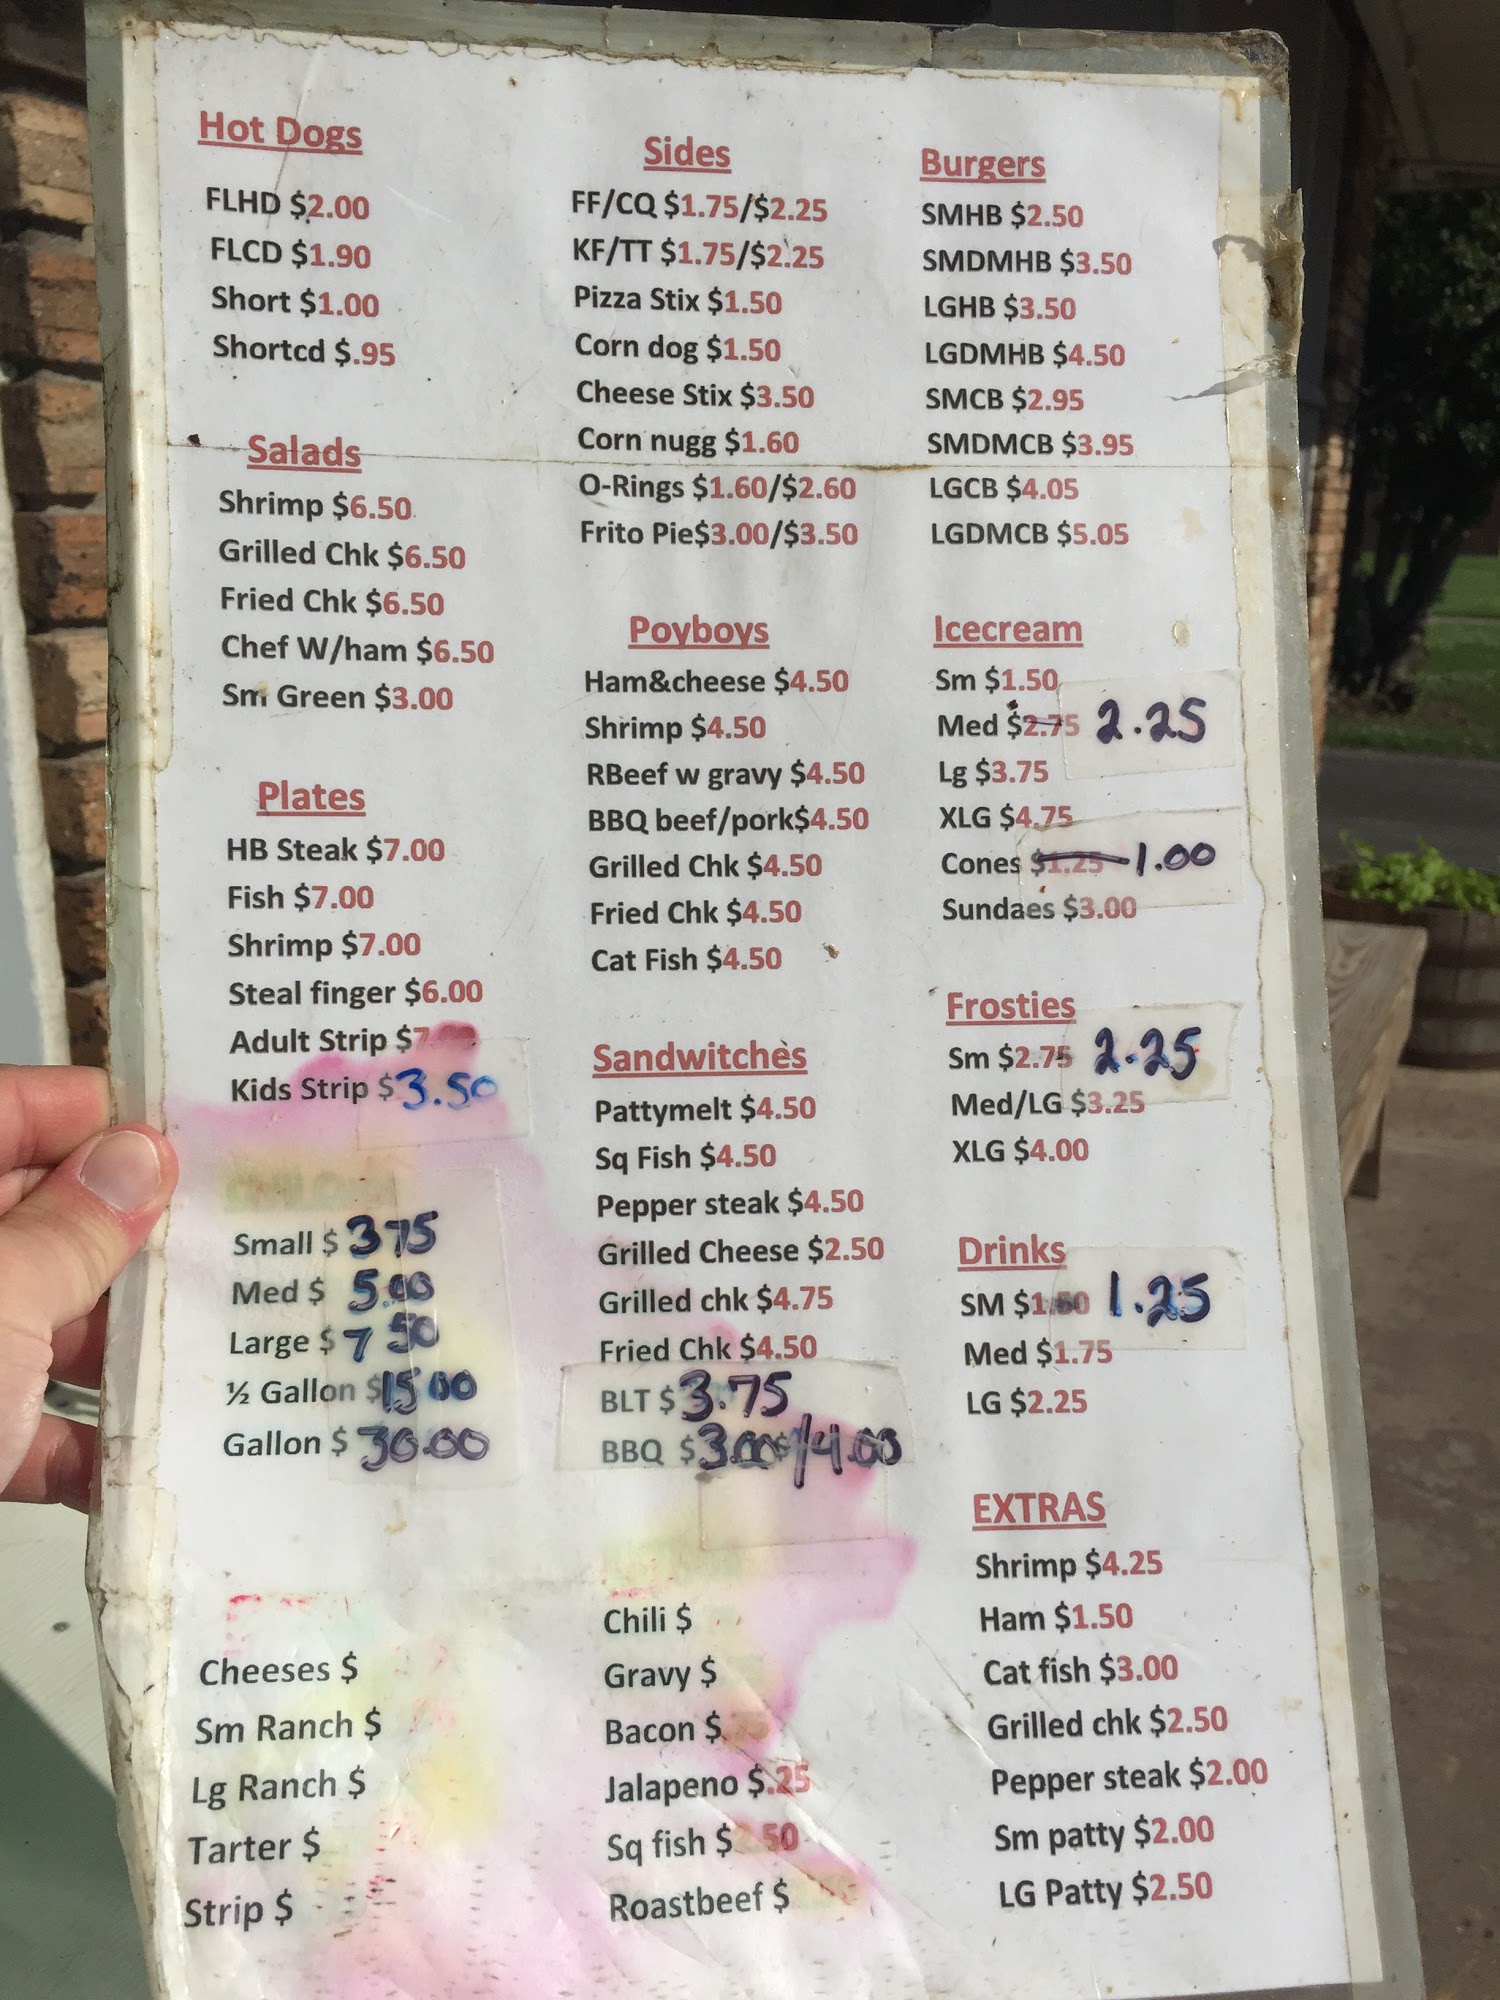 Hot Dogs
FLHD $2.00
FLCD $1.90
Short $1.00
Shortcd $.95
Salads
Shrimp $6.50
Grilled Chk $6.50
Fried Chk $6.50
Chef W/ham $6.50
Sm Green $3.00
Plates
HB Steak $7.00
Fish $7.00
Shrimp $7.00
Steal finger $6.00
Adult Strip $7
Kids Strip $3.50
Small $ 3 75
Med $ 5.00
Large $ 7 50
½ Gallon $15 00
Gallon $ 30.00
Cheeses $
Sm Ranch $
Lg Ranch $
Tarter $
Strip $
Sides
FF/CQ $1.75/$2.25
KF/TT $1.75/$2.25
Pizza Stix $1.50
Corn dog $1.50
Cheese Stix $3.50
Corn nugg $1.60
O-Rings $1.60/$2.60
Frito Pie$3.00/$3.50
Poyboys
Ham&cheese $4.50
Shrimp $4.50
RBeef w gravy $4.50
BBQ beef/pork$4.50
Grilled Chk $4.50
Fried Chk $4.50
Cat Fish $4.50
Sandwitches
Pattymelt $4.50
Sq Fish $4.50
Pepper steak $4.50
Grilled Cheese $2.50
Grilled chk $4.75
Fried Chk $4.50
BLT $3.75
BBQ $3.00/4.00
Chili $
Gravy $
Bacon $
Jalapeno $.25
Sq fish $ 50
Roastbeef $
Burgers
SMHB $2.50
SMDMHB $3.50
LGHB $3.50
LGDMHB $4.50
SMCB $2.95
SMDMCB $3.95
LGCB $4.05
LGDMCB $5.05
Icecream
Sm $1.50
Med $2.75 2.25
Lg $3.75
XLG $4.75
Cones $1.25 1.00
Sundaes $3.00
Frosties
Sm $2.75 2.25
Med/LG $3.25
XLG $4.00
Drinks
SM $1.50 1.25
Med $1.75
LG $2.25
EXTRAS
Shrimp $4.25
Ham $1.50
Cat fish $3.00
Grilled chk $2.50
Pepper steak $2.00
Sm patty $2.00
LG Patty $2.50